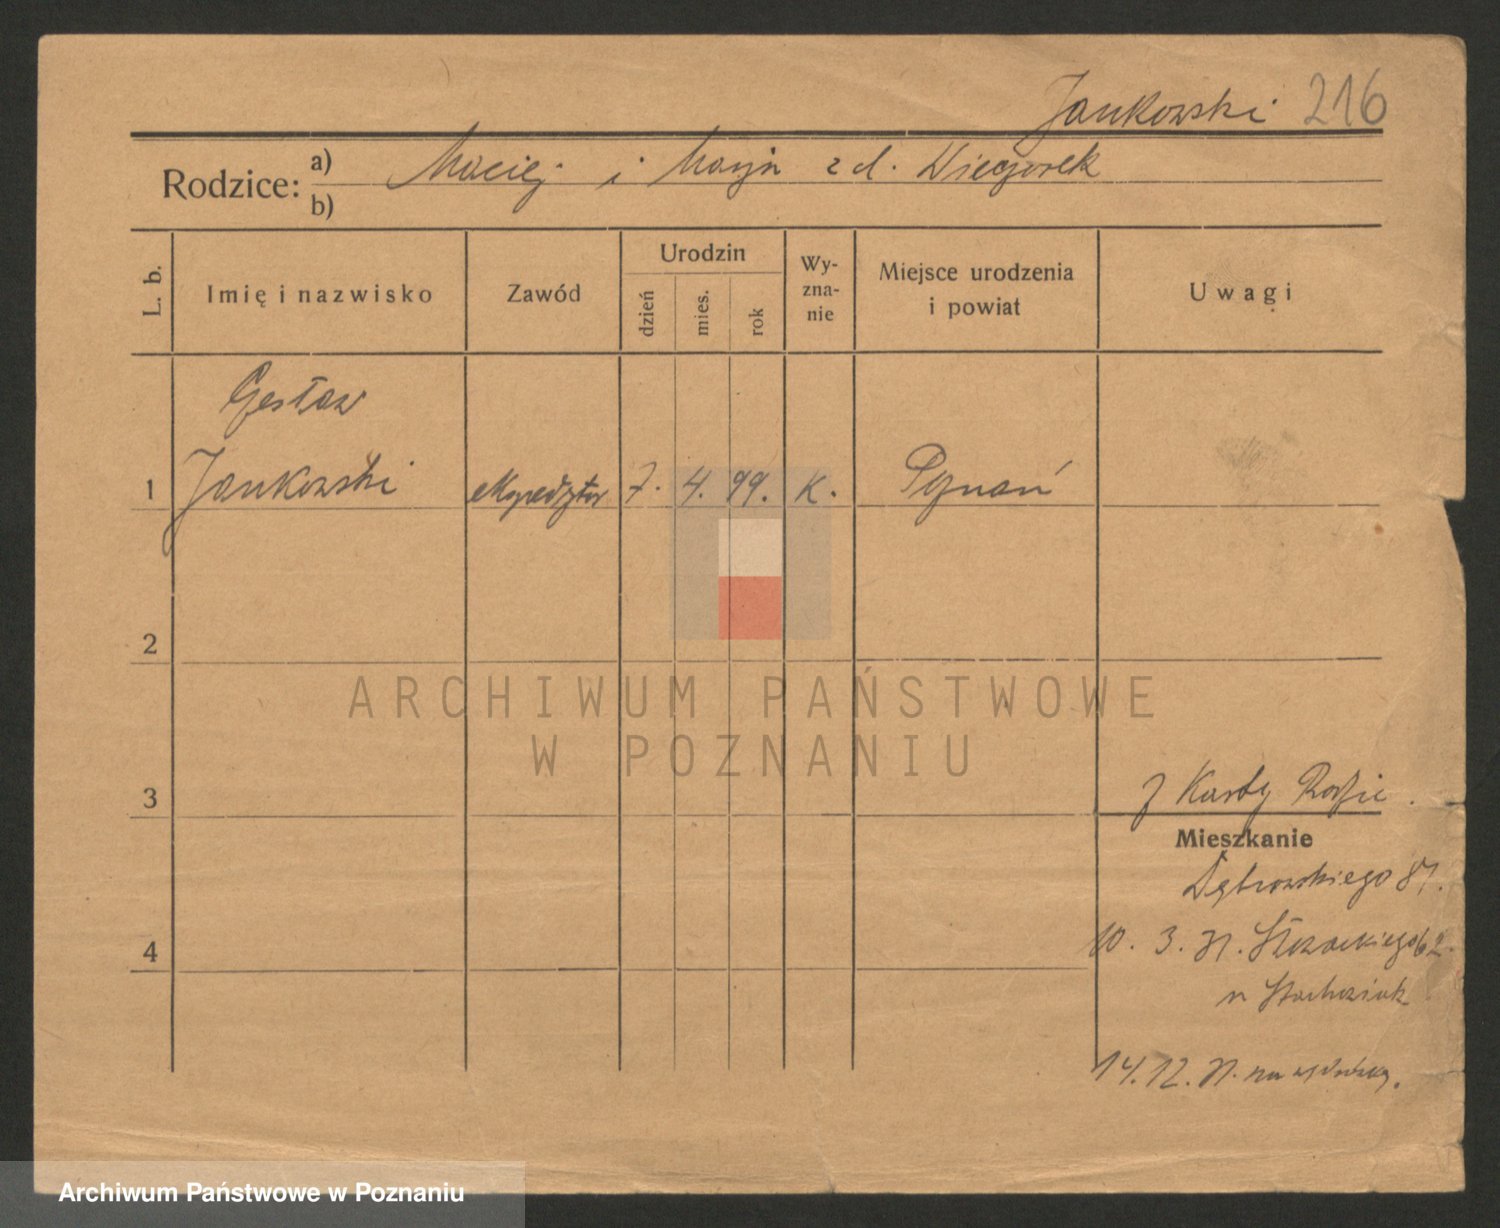 Jankowski 216
Rodzice: a) Maciej i Marja z d. Wieczorek
b)
L. b.
Imię i nazwisko
Zawód
Urodzin
dzień
mies.
rok
Wy-
zna-
nie
Miejsce urodzenia
i powiat
Uwagi
Czesław
1 Jankowski ekspedytor 7. 4. 99. K. Poznań
2
ARCHIWUM PAŃSTWOWE
W POZNANIU
3
z Karty Rodzic.
Mieszkanie
Dąbrowskiego 87.
4
10. 3. 31. Słowackiego 62
u Stachowiak
14. 12. 31. na
Archiwum Państwowe w Poznaniu